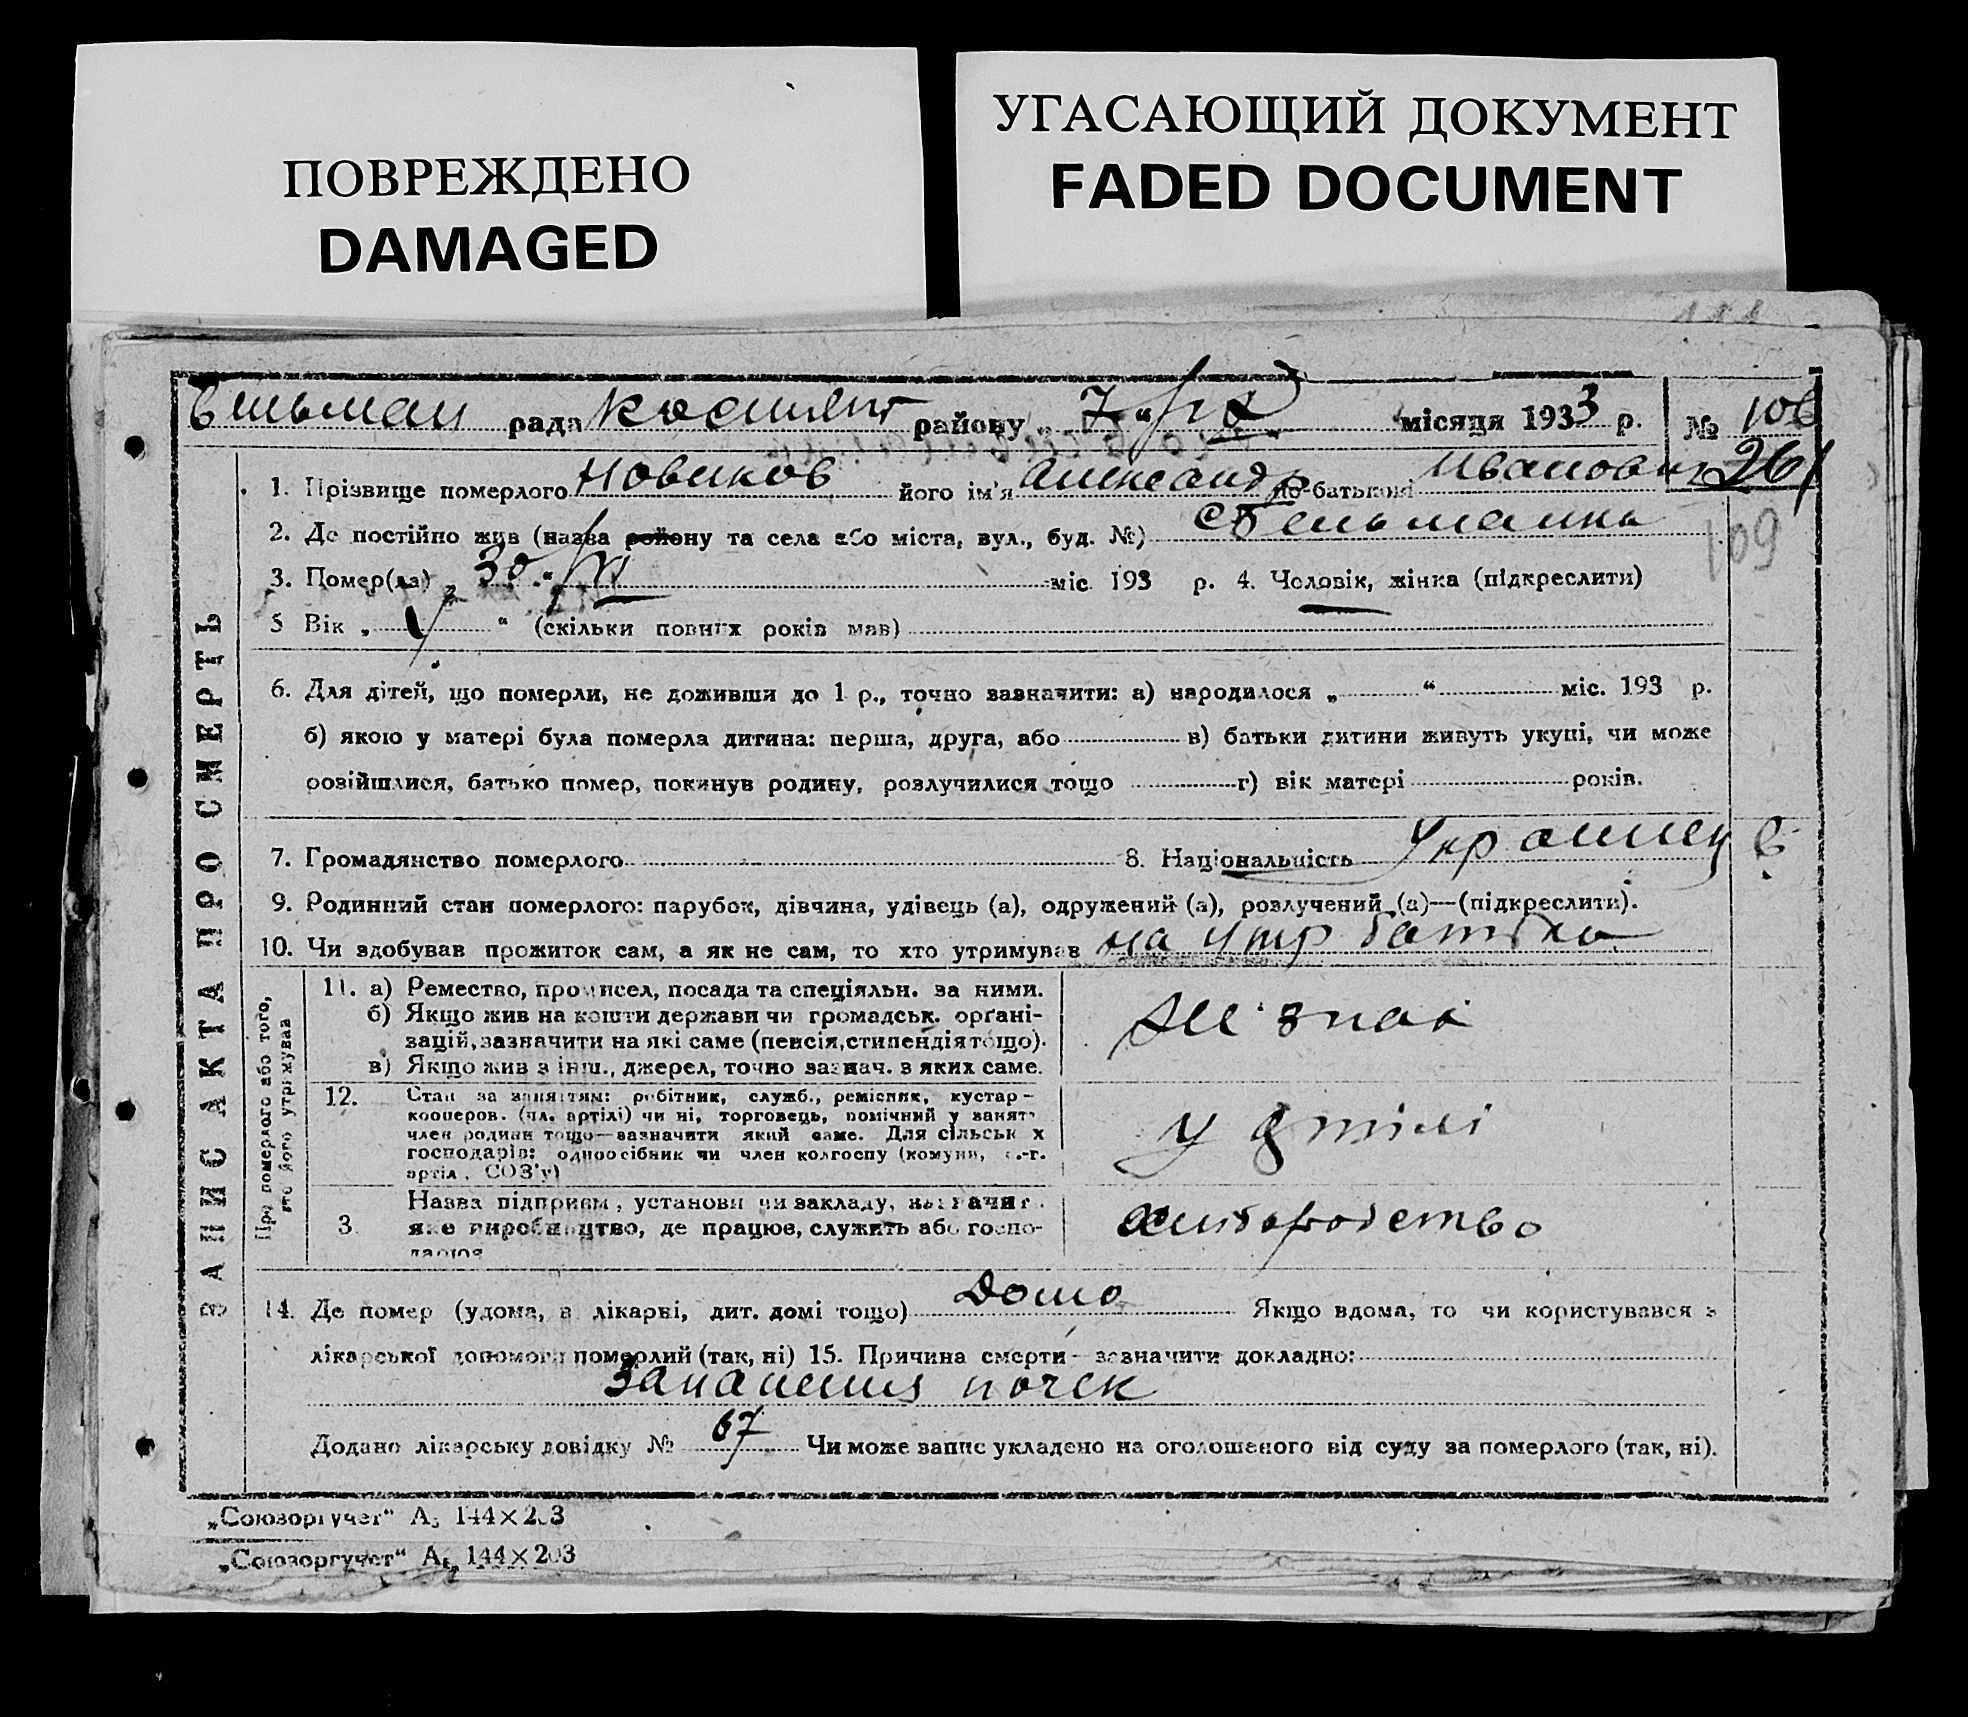 ПОВРЕЖДЕНО
DAMAGED
УГАСАЮЩИЙ ДОКУМЕНТ
FADED DOCUMENT
рада району „ 7 “ місяця 1933 р. № 106
261
109
ЗАПИС АКТА ПРО СМЕРТЬ
1. Прізвище померлого Новиков його ім'я Александр по-батькові Иванович
2. Де постійно жив (назва району та села або міста, вул., буд. №)
3. Помер(ла) „ 30 “ VI міс. 193 р. 4. Чоловік, жінка (підкреслити)
5 Вік „ “ (скільки повних років мав)
6. Для дітей, що померли, не доживши до 1 р., точно зазначити: а) народилося „ “ міс. 193 р.
б) якою у матері була померла дитина: перша, друга, або в) батьки дитини живуть укупі, чи може
розійшлися, батько помер, покинув родину, розлучилися тощо г) вік матері років.
7. Громадянство померлого 8. Національність Украинец
9. Родинний стан померлого: парубок, дівчина, удівець (а), одружений (а), розлучений (а)—(підкреслити).
10. Чи здобував прожиток сам, а як не сам, то хто утримував на утр батька
Про померлого або того, хто його утримував
11. а) Ремество, промисел, посада та спеціяльн. за ними.
б) Якщо жив на кошти держави чи громадськ. орґані-
зацій, зазначити на які саме (пенсія, стипендія тощо).
в) Якщо жив з інш., джерел, точно зазнач. з яких саме.
не знає
12. Стан за заняттям: робітник, служб., ремісник, кустар-
кооперов. (чл. артілі) чи ні, торговець, помічний у занятт
член родини тощо—зазначити який саме. Для сільськ х
господарів: одноосібник чи член колгоспу (комуни, с.-г.
артіл, СОЗ'у)
у артілі
3. Назва підприєм, установи чи закладу, зазначит
яке виробництво, де працює, служить або госпо-
дарює
хлиборобство
14. Де помер (удома, в лікарні, дит. домі тощо) Дома Якщо вдома, то чи користувався з
лікарської допомоги померлий (так, ні) 15. Причина смерти — зазначити докладно:
Запаления почек
Додано лікарську довідку № 67 Чи може запис укладено на оголошеного від суду за померлого (так, ні).
„Союзоргучет“ А5 144×203
„Союзоргучет“ А5 144×203